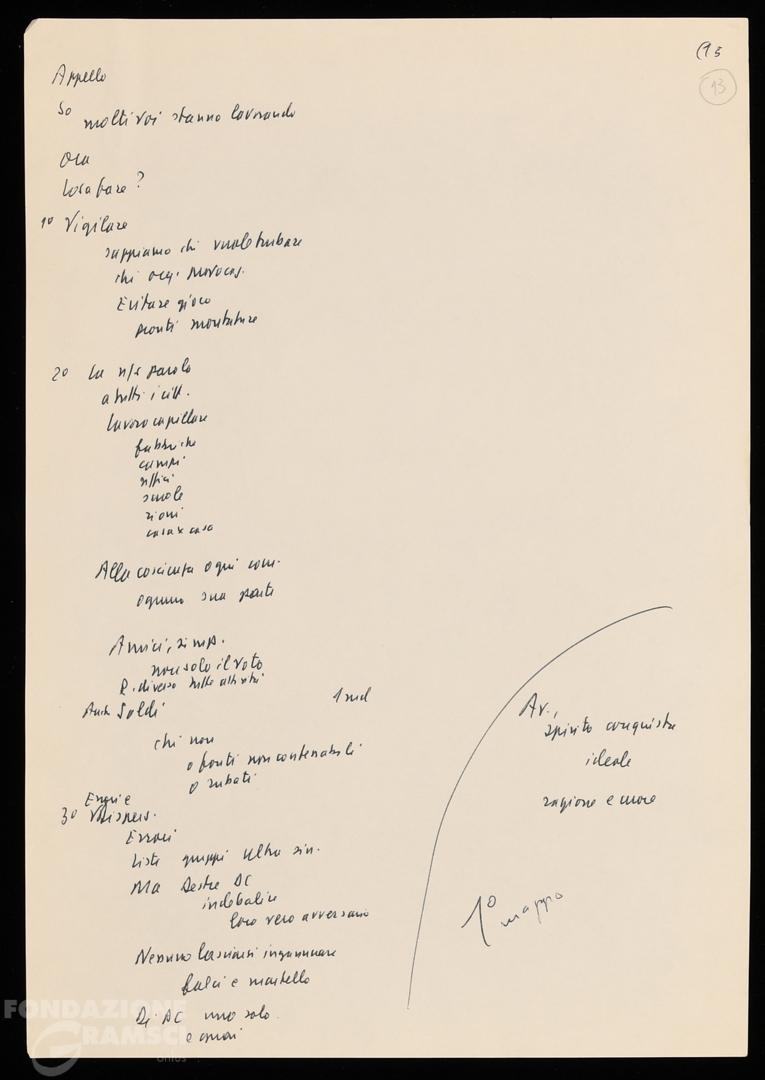 (13
13
Appello
So
molti voi stanno lavorando
Ora
Cosa fare?
1o Vigilare
sappiamo chi vuole turbare
chi org. provocaz.
Evitare gioco
pronti montature
2o La n/s parola
a tutti i citt.
lavoro capillare
fabbriche
campi
uffici
scuole
rioni
casa x casa
Alla coscienza ogni com.
ognuno sua parte
Amici, simp.
non solo il voto
P. diverso tutti altri
Soldi
1 mld
chi non
o fonti non contestabili
o rubati
Errori e
3o dispers.
Errori
Liste gruppi ultra sin.
Ma Destre DC
indebolire
loro vero avversario
Nessuno lasciarsi ingannare
falci e martello
Di DC uno solo
e
Av.,
spirito conquista
ideale
ragione e cuore
1o maggio
FONDAZIONE
GRAMSCI
onlus